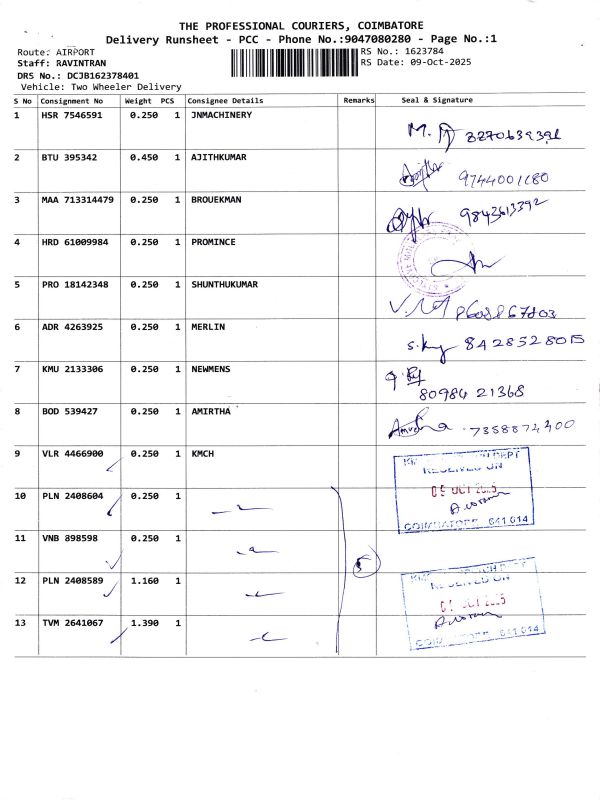 THE PROFESSIONAL COURIERS, COIMBATORE
Delivery Runsheet - PCC - Phone No.:9047080280 - Page No.:1
Route: AIRPORT
RS No.: 1623784
Staff: RAVINTRAN
RS Date: 09-Oct-2025
DRS No.: DCJB162378401
Vehicle: Two Wheeler Delivery
S No Consignment No Weight PCS Consignee Details Remarks Seal & Signature
1 HSR 7546591 0.250 1 JNMACHINERY
2 BTU 395342 0.450 1 AJITHKUMAR 9744001180
3 MAA 713314479 0.250 1 BROUEKMAN 9843613392
4 HRD 61009984 0.250 1 PROMINCE
5 PRO 18142348 0.250 1 SHUNTHUKUMAR
6 ADR 4263925 0.250 1 MERLIN 8428528015
7 KMU 2133306 0.250 1 NEWMENS 80984 21368
8 BOD 539427 0.250 1 AMIRTHA 7358874400
9 VLR 4466900 0.250 1 KMCH
RECEIVED ON
09 OCT 2025
COIMBATORE 641 014
10 PLN 2408604 0.250 1
11 VNB 898598 0.250 1
5
12 PLN 2408589 1.160 1
RECEIVED ON
OCT 2025
COIMBATORE 641 014
13 TVM 2641067 1.390 1